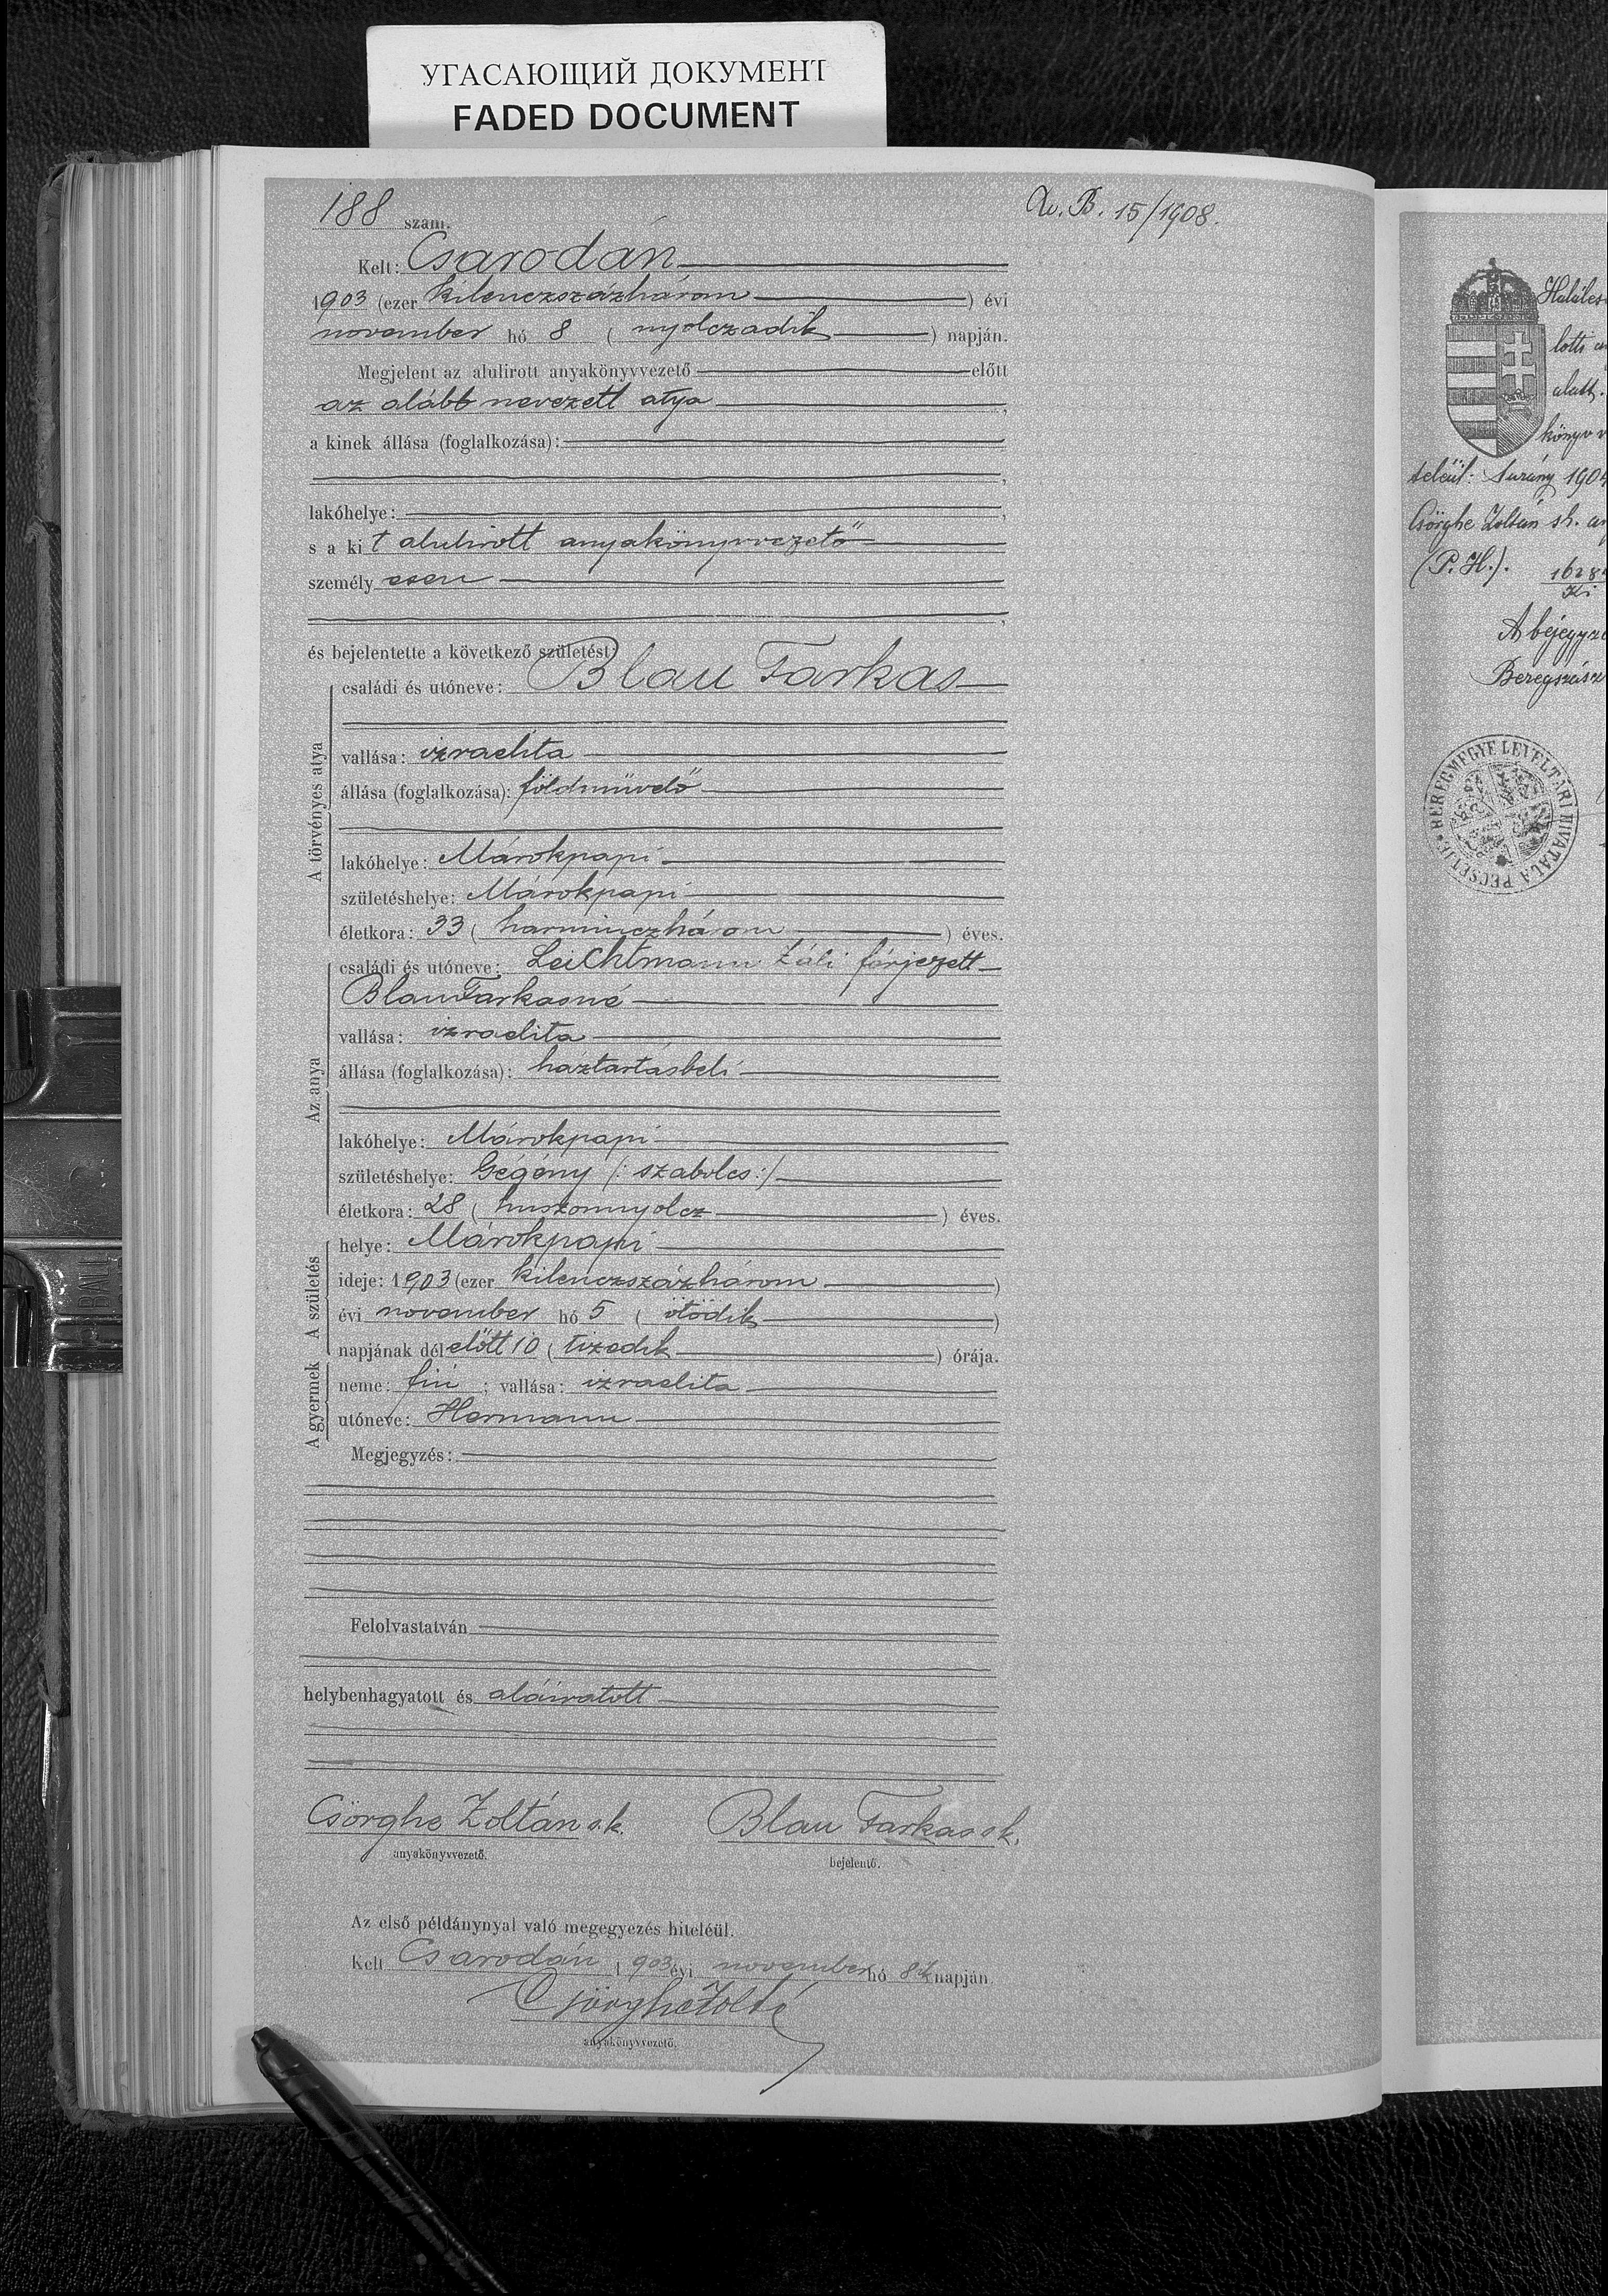 УГАСАЮЩИЙ ДОКУМЕНТ
FADED DOCUMENT
188 szám.
B. 15/1908.
Kelt: Csarodán
1903 (ezer kilenczszázhárom) évi
november hó 8 (nyolczadik) napján.
Megjelent az alulirott anyakönyvvezető előtt
az alább nevezett atya,
a kinek állása (foglalkozása):
lakóhelye:
s a kit alulirott anyakönyvvezető
személyesen
és bejelentette a következő születést:
A törvényes atya
családi és utóneve: Blau Farkas
vallása: izraelita
állása (foglalkozása): földmüvelő
lakóhelye: Márokpapi
születéshelye: Márokpapi
életkora: 33 (harminczhárom) éves.
Az anya
családi és utóneve: Leichtmann Záli férjezett
Blau Farkasné
vallása: izraelita
állása (foglalkozása): háztartásbeli
lakóhelye: Márokpapi
születéshelye: Gégény (: szabolcs :)
életkora: 28 (huszonnyolcz) éves.
A születés
helye: Márokpapi
ideje: 1903 (ezer kilenczszázhárom)
évi november hó 5 (ötödik)
napjának délelőtt 10 (tizedik) órája.
A gyermek
neme: fiú; vallása: izraelita
utóneve: Hermann
Megjegyzés:
Felolvastatván
helybenhagyatott és aláiratott
Csörghe Zoltán s.k. Blau Farkas sk.
anyakönyvvezető. bejelentő.
Az első példánynyal való megegyezés hiteléül.
Kelt Csarodán 1903 évi november hó 8ik napján.
Csörghe Zoltán
anyakönyvvezető.
alatt.
teléül: Surány 1904
Csörghe Zoltán sk.
(P. H.).
1628
A bejegyzé
Beregszász
BEREGMEGYE LEVÉLTÁRI HIVATALA PECSÉTJE
BALL